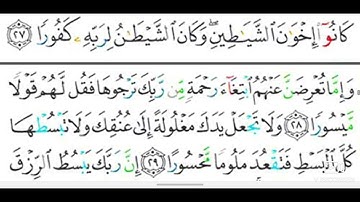 كَانُوٓا۟ إِخْوَٰنَ ٱلشَّيَـٰطِينِ ۖ وَكَانَ ٱلشَّيْطَـٰنُ لِرَبِّهِۦ كَفُورًا ﴿٢٧﴾
وَإِمَّا تُعْرِضَنَّ عَنْهُمُ ٱبْتِغَآءَ رَحْمَةٍ مِّن رَّبِّكَ تَرْجُوهَا فَقُل لَّهُمْ قَوْلًا
مَّيْسُورًا ﴿٢٨﴾ وَلَا تَجْعَلْ يَدَكَ مَغْلُولَةً إِلَىٰ عُنُقِكَ وَلَا تَبْسُطْهَا
كُلَّ ٱلْبَسْطِ فَتَقْعُدَ مَلُومًا مَّحْسُورًا ﴿٢٩﴾ إِنَّ رَبَّكَ يَبْسُطُ ٱلرِّزْقَ